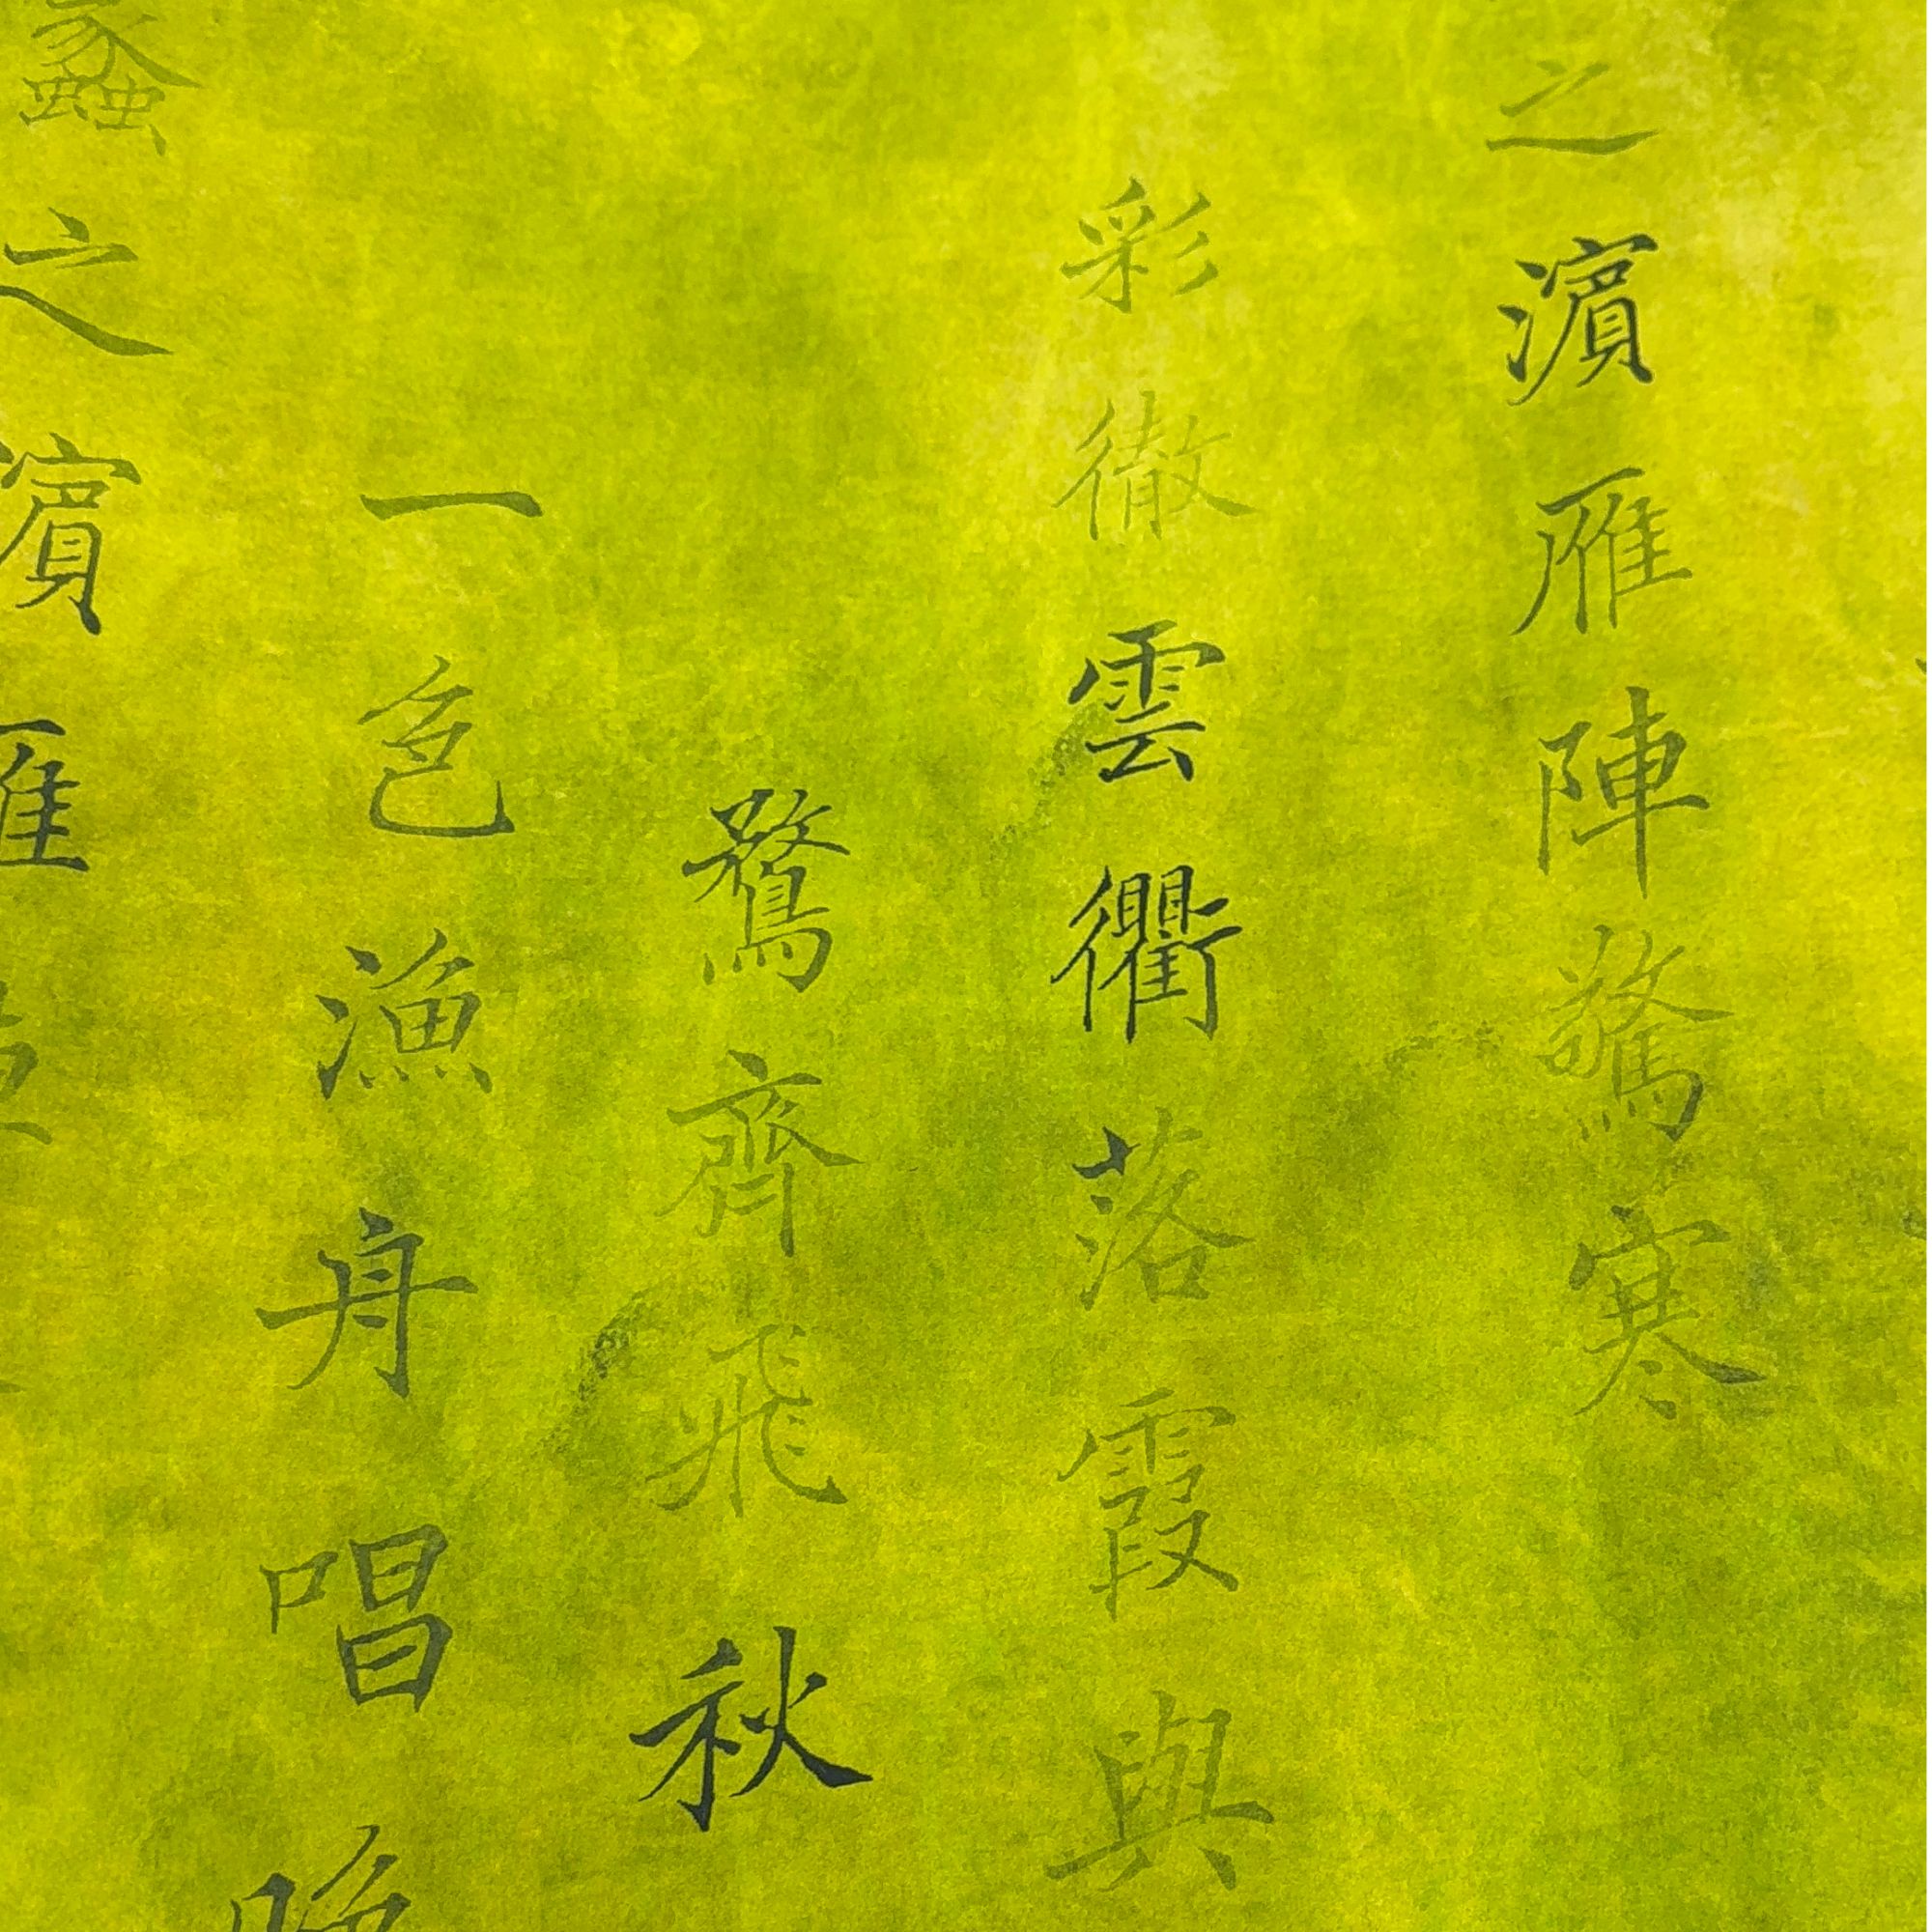 之濱雁陣驚寒
彩徹雲衢落霞與
鶩齊飛秋
一色漁舟唱晚
蠡之濱雁